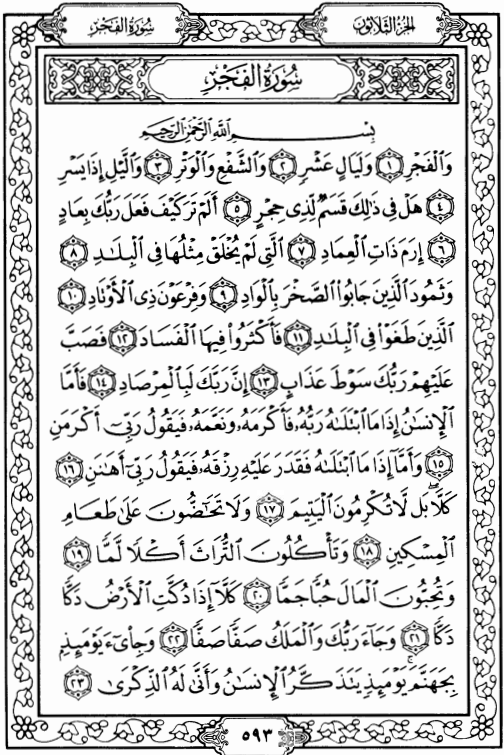 الجُزءُ الثَّلاثُونَ
سُورَةُ الفَجْرِ
سُورَةُ الفَجْرِ
بِسْمِ ٱللَّهِ ٱلرَّحْمَٰنِ ٱلرَّحِيمِ
وَٱلْفَجْرِ ١ وَلَيَالٍ عَشْرٍ ٢ وَٱلشَّفْعِ وَٱلْوَتْرِ ٣ وَٱلَّيْلِ إِذَا يَسْرِ
٤ هَلْ فِى ذَٰلِكَ قَسَمٌ لِّذِى حِجْرٍ ٥ أَلَمْ تَرَ كَيْفَ فَعَلَ رَبُّكَ بِعَادٍ
٦ إِرَمَ ذَاتِ ٱلْعِمَادِ ٧ ٱلَّتِى لَمْ يُخْلَقْ مِثْلُهَا فِى ٱلْبِلَٰدِ ٨
وَثَمُودَ ٱلَّذِينَ جَابُوا۟ ٱلصَّخْرَ بِٱلْوَادِ ٩ وَفِرْعَوْنَ ذِى ٱلْأَوْتَادِ ١٠
ٱلَّذِينَ طَغَوْا۟ فِى ٱلْبِلَٰدِ ١١ فَأَكْثَرُوا۟ فِيهَا ٱلْفَسَادَ ١٢ فَصَبَّ
عَلَيْهِمْ رَبُّكَ سَوْطَ عَذَابٍ ١٣ إِنَّ رَبَّكَ لَبِٱلْمِرْصَادِ ١٤ فَأَمَّا
ٱلْإِنسَٰنُ إِذَا مَا ٱبْتَلَىٰهُ رَبُّهُۥ فَأَكْرَمَهُۥ وَنَعَّمَهُۥ فَيَقُولُ رَبِّىٓ أَكْرَمَنِ
١٥ وَأَمَّآ إِذَا مَا ٱبْتَلَىٰهُ فَقَدَرَ عَلَيْهِ رِزْقَهُۥ فَيَقُولُ رَبِّىٓ أَهَٰنَنِ ١٦
كَلَّا ۖ بَل لَّا تُكْرِمُونَ ٱلْيَتِيمَ ١٧ وَلَا تَحَٰٓضُّونَ عَلَىٰ طَعَامِ
ٱلْمِسْكِينِ ١٨ وَتَأْكُلُونَ ٱلتُّرَاثَ أَكْلًا لَّمًّا ١٩
وَتُحِبُّونَ ٱلْمَالَ حُبًّا جَمًّا ٢٠ كَلَّآ إِذَا دُكَّتِ ٱلْأَرْضُ دَكًّا
دَكًّا ٢١ وَجَآءَ رَبُّكَ وَٱلْمَلَكُ صَفًّا صَفًّا ٢٢ وَجِا۟ىٓءَ يَوْمَئِذٍۭ
بِجَهَنَّمَ ۚ يَوْمَئِذٍ يَتَذَكَّرُ ٱلْإِنسَٰنُ وَأَنَّىٰ لَهُ ٱلذِّكْرَىٰ ٢٣
٥٩٣